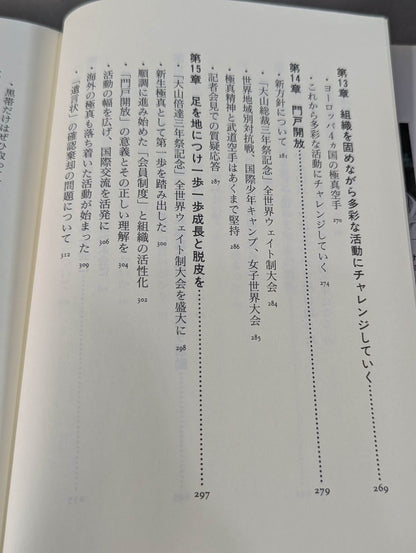 第13章 組織を固めながら多彩な活動にチャレンジしていく……269
・ヨーロッパ4ヵ国の極真空手 270
・これから多彩な活動にチャレンジしていく 274
第14章 門戸開放……279
・新方針について 281
・「大山総裁三年祭記念」全世界ウェイト制大会 284
・世界地域別対抗戦、国際少年キャンプ、女子世界大会 285
・極真精神と武道空手はあくまで堅持 286
・記者会見での質疑応答 287
第15章 足を地につけ一歩一歩成長と脱皮を……297
・「大山倍達三年祭記念」全世界ウェイト制大会を盛大に 298
・新生極真として第一歩を踏み出した 300
・順調に進み始めた「会員制度」と組織の活性化 302
・「門戸開放」の意義とその正しい理解を 304
・活動の幅を広げ、国際交流を活発に 306
・海外の極真も落ち着いた活動が始まった 309
・「遺言状」の確認棄却の問題について 312
・黒帯だけはぜひ取っ